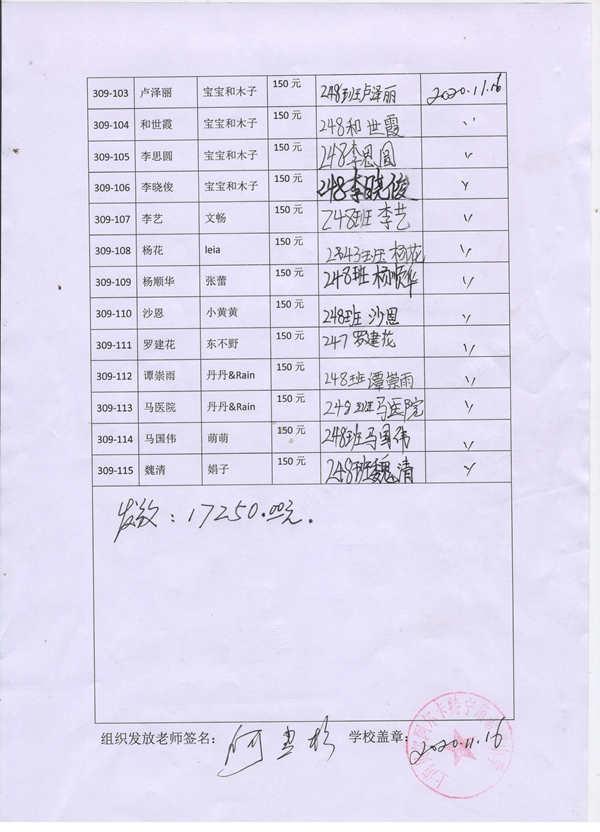 309-103 卢泽丽 宝宝和木子 150元 248班卢泽丽 2020.11.16
309-104 和世霞 宝宝和木子 150元 248和世霞 〃
309-105 李思圆 宝宝和木子 150元 248李思圆 〃
309-106 李晓俊 宝宝和木子 150元 248李晓俊 〃
309-107 李艺 文畅 150元 248班 李艺 〃
309-108 杨花 leia 150元 杨花 〃
309-109 杨顺华 张蕾 150元 248班 杨顺华 〃
309-110 沙恩 小黄黄 150元 248班 沙恩 〃
309-111 罗建花 东不野 150元 247 罗建花 〃
309-112 谭崇雨 丹丹&Rain 150元 248班谭崇雨 〃
309-113 马医院 丹丹&Rain 150元 248班马医院 〃
309-114 马国伟 萌萌 150元 248班马国伟 〃
309-115 魏清 娟子 150元 248班魏清 〃
发放：17250.00元.
组织发放老师签名： 学校盖章： 2020.11.16